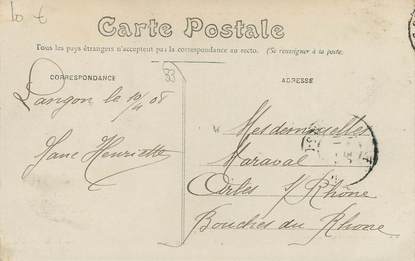 10 €
Carte Postale
Tous les pays étrangers n'acceptent pas la correspondance au recto. (Se renseigner à la poste.
CORRESPONDANCE
33
ADRESSE
Langon le 10/4 08
Henriette
Mesdemoiselles
Maraval
Arles s/ Rhône
Bouches du Rhone